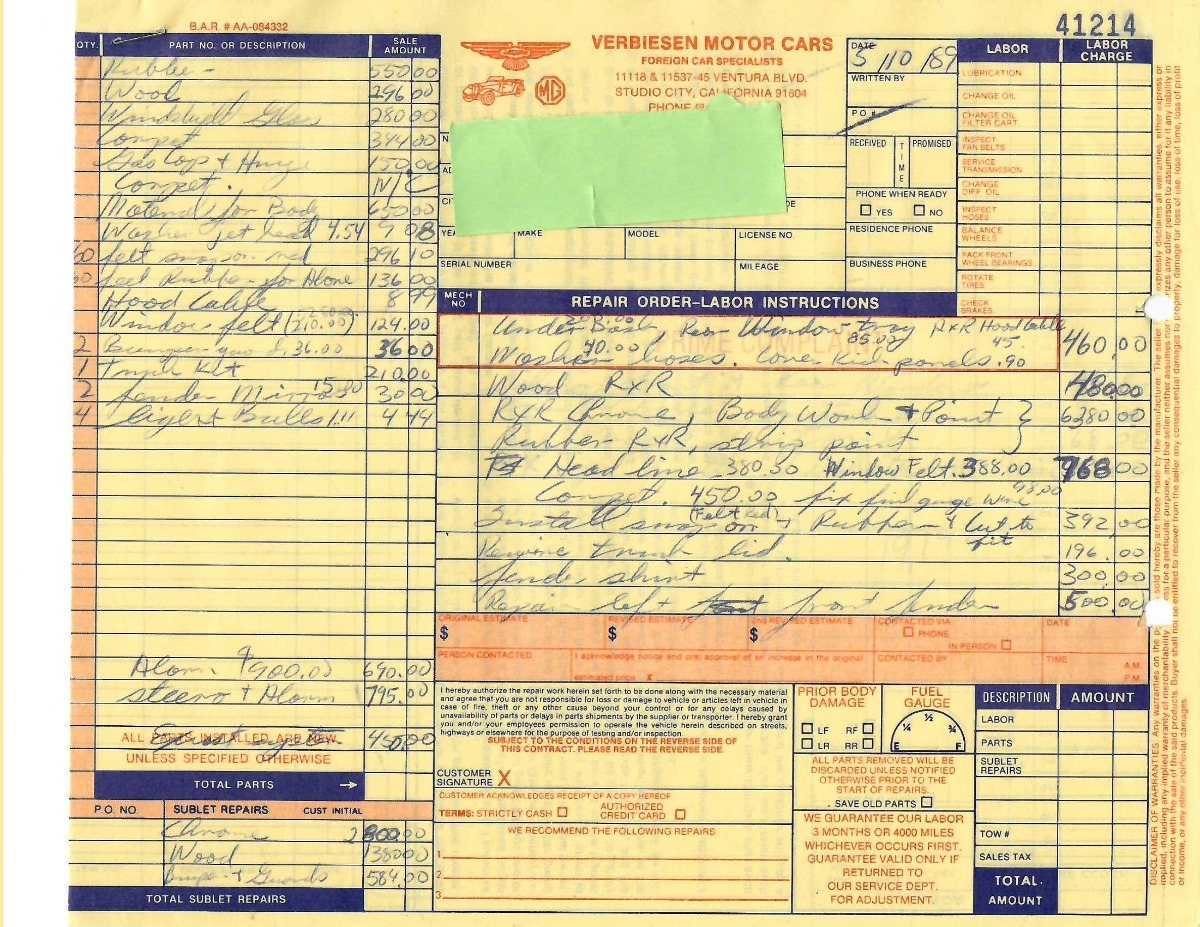 B.A.R. # AA-084332
41214
QTY. PART NO. OR DESCRIPTION SALE AMOUNT
Rubber - 550.00
Wood 296.00
Windshield Glass 280.00
Carpet 344.00
Gas Cap + Hinge 150.00
Carpet. N/C
Material for Body 650.00
Washer jet head 4.54 9 08
felt snap on red 296 10
feet Rubber - for 136.00
Hood Cable 8
Window felt (210.00) 124.00
2 Bumper guard 36.00 36.00
1 Trunk Kit 210.00
2 fender Mirror 15.00 30.00
4 Light Bulbs 1.11 4.44
Alarm $900.00 690.00
stereo + Alarm 795.00
450.00
ALL PARTS INSTALLED ARE NEW
UNLESS SPECIFIED OTHERWISE
TOTAL PARTS →
P.O. NO. SUBLET REPAIRS CUST INITIAL
Chrom 2800.00
Wood 1380.00
Bump + Guards 584.00
TOTAL SUBLET REPAIRS
VERBIESEN MOTOR CARS
FOREIGN CAR SPECIALISTS
MG
11118 & 11537-45 VENTURA BLVD.
STUDIO CITY, CALIFORNIA 91604
PHONE
DATE 5/10/89
WRITTEN BY
P.O.#
RECEIVED TIME PROMISED
PHONE WHEN READY
YES NO
RESIDENCE PHONE
BUSINESS PHONE
MAKE MODEL LICENSE NO.
SERIAL NUMBER MILEAGE
LABOR LABOR CHARGE
LUBRICATION
CHANGE OIL
CHANGE OIL FILTER CART.
INSPECT FAN BELTS
SERVICE TRANSMISSION
CHANGE DIFF OIL
INSPECT HOSES
BALANCE WHEELS
PACK FRONT WHEEL BEARINGS
ROTATE TIRES
CHECK BRAKES
MECH NO REPAIR ORDER-LABOR INSTRUCTIONS
Under Dash, Rear Window tray 85.00 R&R Hood Cable 45. 460.00
Washer hoses. 40.00 Cover Kick panels .90
Wood R&R 480.00
R&R Chrome, Body Work + Paint } 6280.00
Rubber R&R, strip paint
Head line 380.00 Window Felt. 388.00 768.00
Carpet. 450.00 fix gauge wire 98.00
Install snap on (Felt Red) + Rubber + Cut to fit 392.00
trunk lid. 196.00
fender skirt 300.00
Repair left front fender 500.00
ORIGINAL ESTIMATE $ REVISED ESTIMATE $ 2nd REVISED ESTIMATE $ CONTACTED VIA: PHONE IN PERSON DATE
PERSON CONTACTED I acknowledge notice and oral approval of an increase in the original estimated price. X CONTACTED BY TIME A.M. P.M.
I hereby authorize the repair work herein set forth to be done along with the necessary material
and agree that you are not responsible for loss or damage to vehicle or articles left in vehicle
in case of fire, theft or any other cause beyond your control or for any delays caused by
unavailability of parts or delays in parts shipments by the supplier or transporter. I hereby grant
you and/or your employees permission to operate the vehicle herein described on streets,
highways or elsewhere for the purpose of testing and/or inspection.
SUBJECT TO THE CONDITIONS ON THE REVERSE SIDE OF
THIS CONTRACT. PLEASE READ THE REVERSE SIDE.
CUSTOMER SIGNATURE X
CUSTOMER ACKNOWLEDGES RECEIPT OF A COPY HEREOF
TERMS: STRICTLY CASH AUTHORIZED CREDIT CARD
WE RECOMMEND THE FOLLOWING REPAIRS
1
2
3
PRIOR BODY DAMAGE
LF RF
LR RR
FUEL GAUGE
E ¼ ½ ¾ F
ALL PARTS REMOVED WILL BE
DISCARDED UNLESS NOTIFIED
OTHERWISE PRIOR TO THE
START OF REPAIRS.
SAVE OLD PARTS
WE GUARANTEE OUR LABOR
3 MONTHS OR 4000 MILES
WHICHEVER OCCURS FIRST.
GUARANTEE VALID ONLY IF
RETURNED TO
OUR SERVICE DEPT.
FOR ADJUSTMENT.
DESCRIPTION AMOUNT
LABOR
PARTS
SUBLET REPAIRS
TOW #
SALES TAX
TOTAL AMOUNT